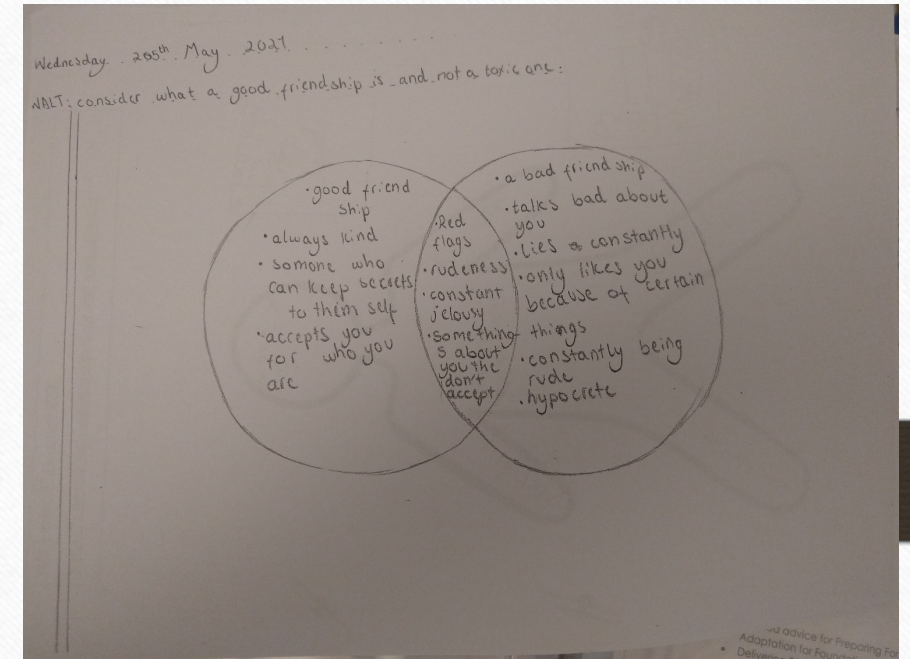 Wednesday 205th May 2021
WALT: consider what a good friendship is and not a toxic one:
• good friend
ship
• always kind
• somone who
can keep secrets
to them self
• accepts you
for who you
are
• Red
flags
• rudeness
• constant
jelousy
• something
s about
you the
don't
accept
• a bad friend ship
• talks bad about
you
• lies constantly
• only likes you
because of certain
things
• constantly being
rude
• hypocrete
advice for Preparing For
Adaptation for